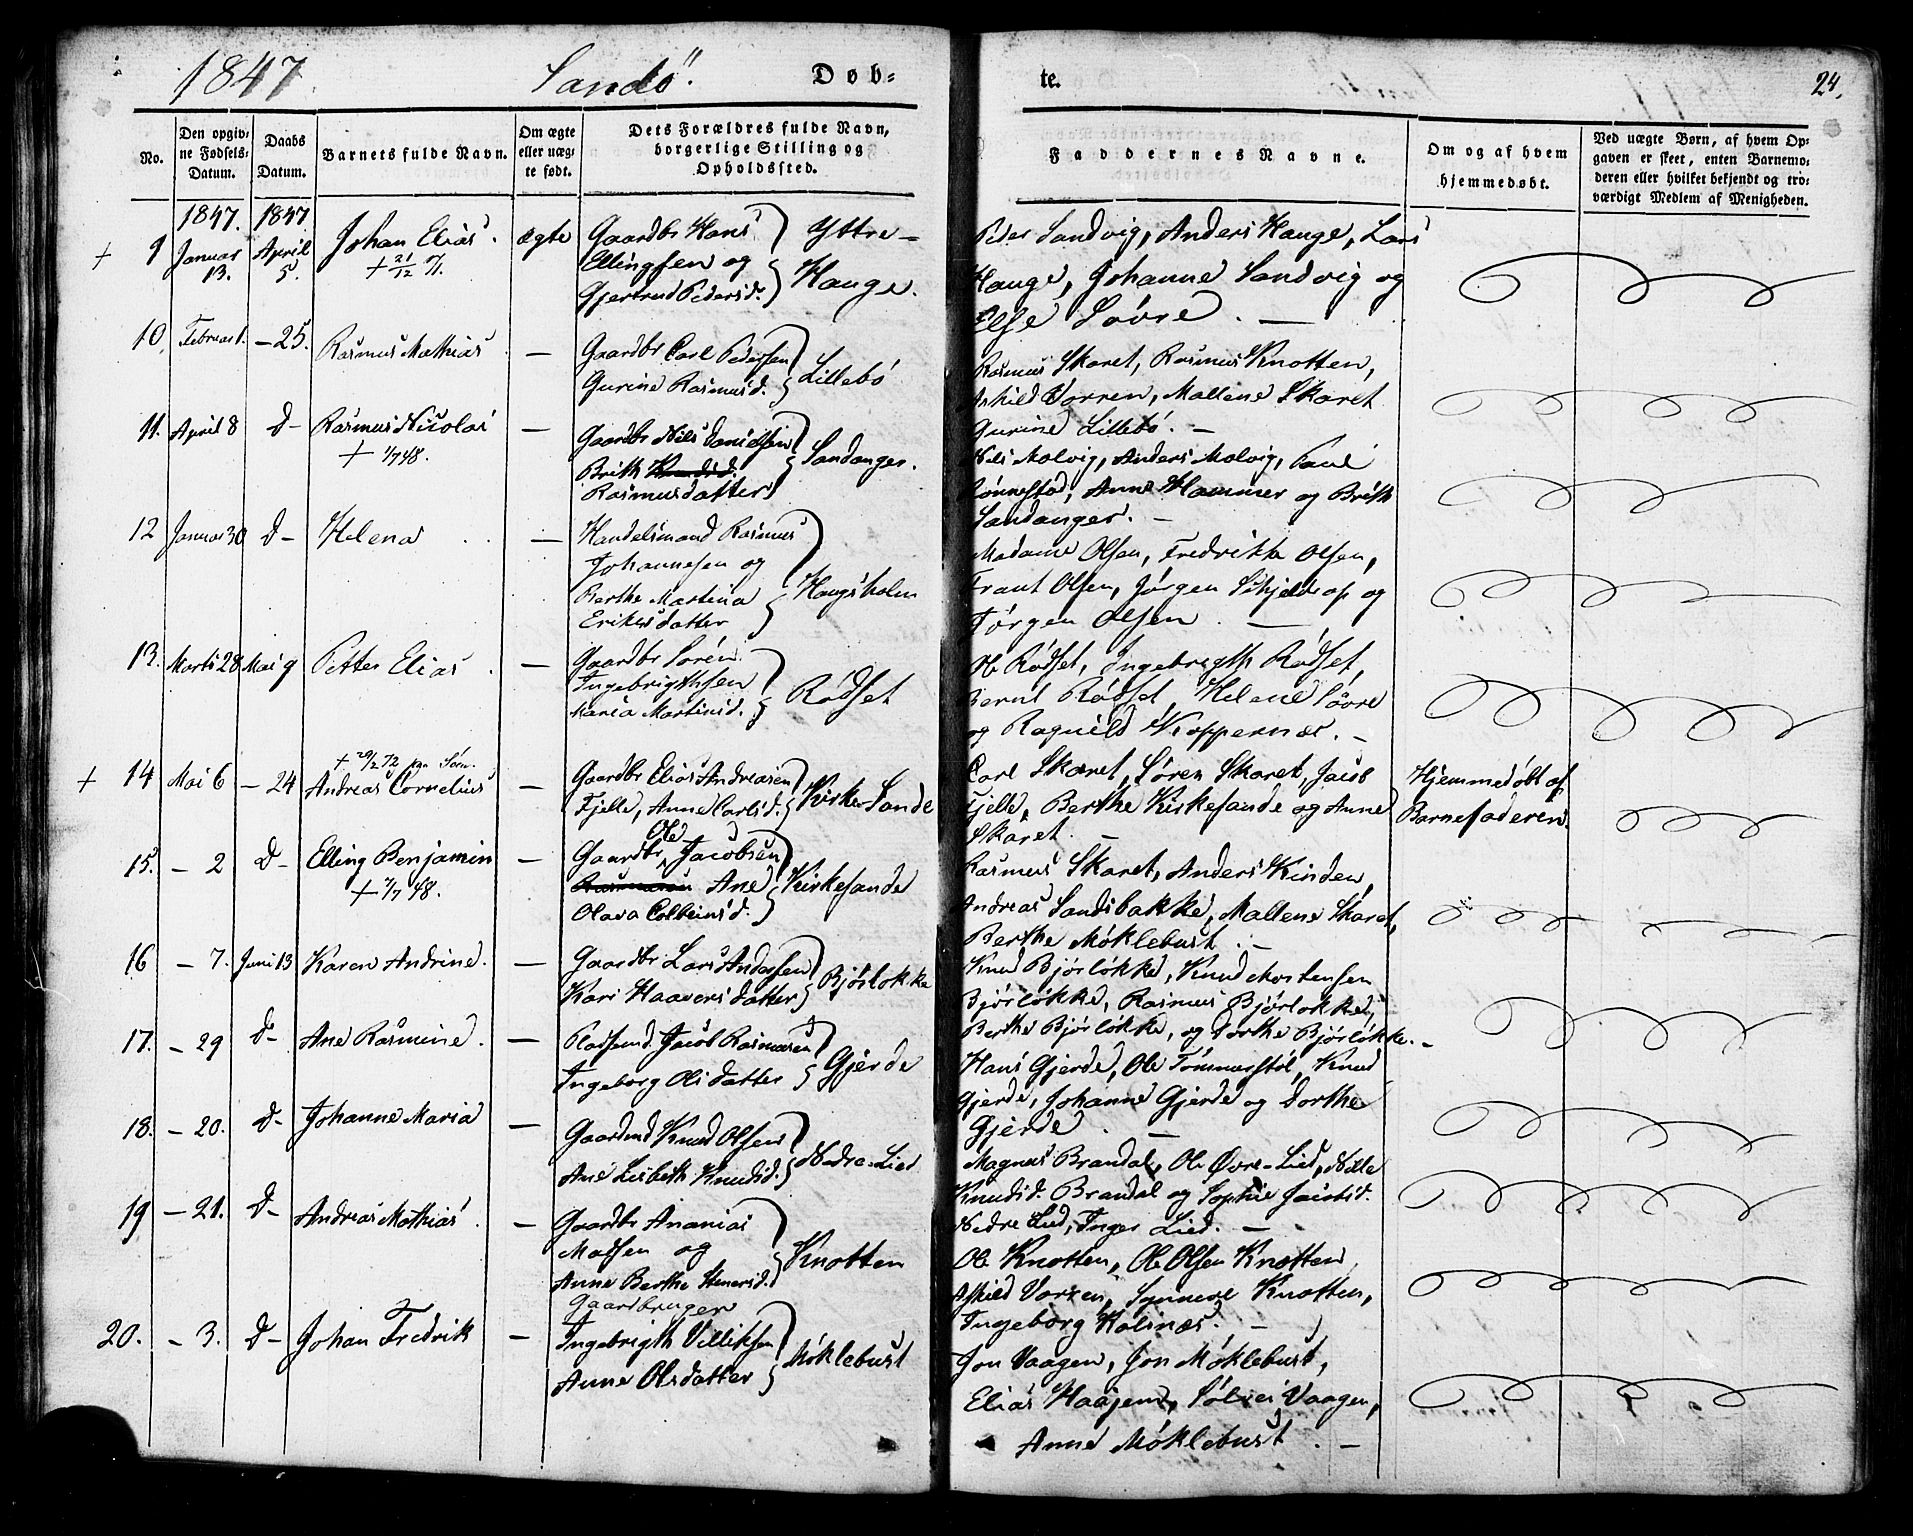 1847. Sandö. Døb=
te. 24.
No.
Den opgiv=
ne Fødsels=
Datum.
Daabs
Datum.
Barnets fulde Navn.
Om ægte
eller uæg=
te født.
Dets Forældres fulde Navn,
borgerlige Stilling og
Opholdssted.
Faddernes Navne.
Om og af hvem
hjemmedøbt.
Ved uægte Børn, af hvem Op=
gaven er skeet, enten Barnemo=
deren eller hvilket bekjendt og tro=
værdigt Medlem af Menigheden.
1847. 1847.
+ 9 Januar 13. April 5. Johan Elias. ægte
+ 21/12
Gaardbr Hans
Ellingsen og
Gjertrud Pedersd.
Yttre-
Hauge.
Peder Sandvig, Anders Hauge, Lars
Hauge, Johanne Sandvig og
Else Sövre. —
10. Februar 1. — 25. Rasmus Mathias. —
Gaardbr Carl Pedersen
Gurine Rasmusd.
Lillebö
Rasmus Skaret, Rasmus Knotten,
Askild Vorren, Mallene Skaret
Gurine Lillebö. —
11. April 8 D- Rasmus Nicolai —
+ 1/7 48.
Gaardbr Nils Danielsen
Brith
Rasmusdatter
Sandanger.
Nils Molvig, Anders Molvig, Paul
Rönnestad, Anne Hammer og Brith
Sandanger. —
12 Januar 30 D- Helena —
Handelsmand Rasmus
Johannesen og
Berthe Martina
Eriksdatter
Haugsholm
Madame Olsen, Fredrikke Olsen,
Frant Olsen, Jörgen Schjelderop og
Jörgen Olsen. —
13. Marts 28 Mai 9 Petter Elias. —
Gaardbr Sören
Ingebrigthsen
Maria Martinsd.
Rödset
Ole Rödset, Ingebrigth Rödset,
Bernt Rödset, Helene Sövre
og Ragnild Koppernæs. —
+ 14 Mai 6 — 24 Andreas Cornelius —
+ 29/2 72
Gaardbr Elias Andreasen
Fjelle, Anne Carlsd.
Kirke Sande
Carl Skaret, Sören Skaret, Jacob
Fjelle, Berthe Kirkesande og Anne
Skaret. —
Hjemmedöbt af
Barnefaderen.
15. — 2 D- Elling Benjamin —
+ 7/7 48.
Gaardbr Ole Jacobsen
Ane
Olava Colbeinsd.
Kirkesande
Rasmus Skaret, Anders Kinden,
Andreas Sandsbakke, Mallene Skaret,
Berthe Möklebust. —
16 — 7. Juni 13 Karen Andrine. —
Gaardbr Lars Andersen
Kari Haaversdatter
Bjørlokke
Knud Bjørløkke, Knud Mortensen
Bjørløkke, Rasmus Bjørlokke,
Berthe Bjørløkke, og Dorthe Bjørløkke. —
17. — 29 D- Ane Rasmine. —
Pladsmd. Jacob Rasmusen
Ingeborg Olsdatter
Gjerde
Hans Gjerde, Ole Tömmerstöl, Knud
Gjerde, Johanne Gjerde og Dorthe
Gjerde. —
18. — 20. D- Johanne Maria —
Gaardmd Knud Olsen
Ane Lisbeth Knudsd.
Nedre-Lied
Magnus Brandal, Ole Øvre-Lied, Nille
Knudsd. Brandal og Sophie Jacobsd.
Nedre Lied, Inger Lied. —
19 — 21. D- Andreas Mathias. —
Gaardbr Ananias
Madsen og
Anne Berthe Steensd.
Knotten
Ole Knotten, Ole Olsen Knotten
Askild Vorren, Synneve Knotten,
Ingeborg Kalsnæs. —
20. — 3. D- Johan Fredrik —
Gaardbruger
Ingebrigth Villiksen
Anne Olsdatter
Möklebust
Jon Vaagen, Jon Möklebust,
Elias Haajem, Sölvei Vaagen,
Anne Möklebust. —